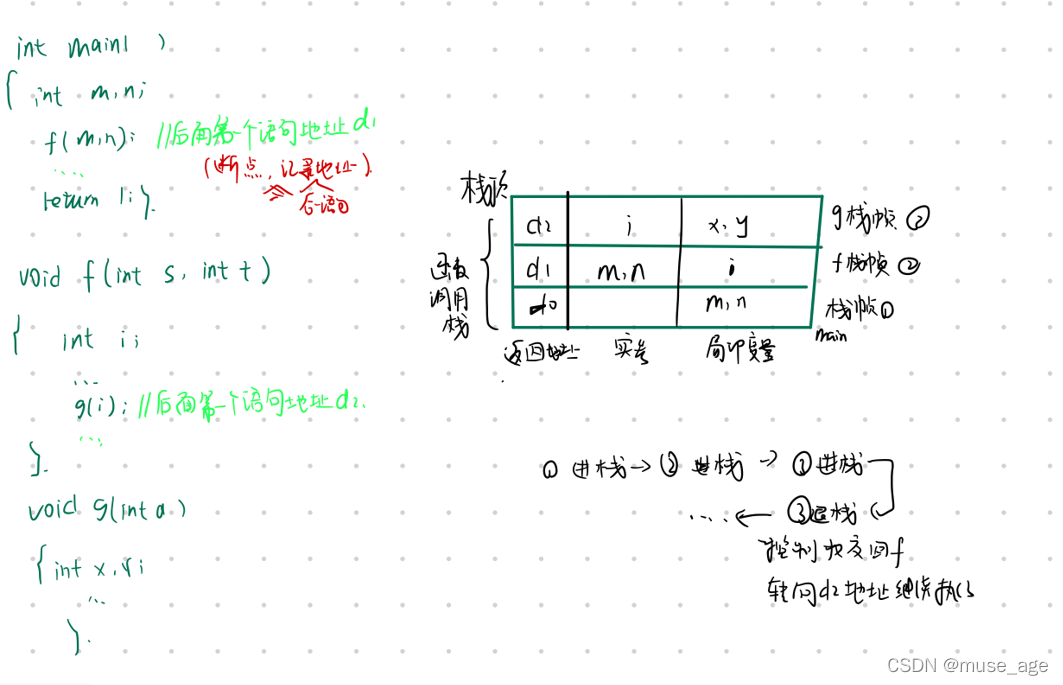 int main( )
{ int m,n;
f(m,n); //后面第一个语句地址d1
....
(断点,记录地址).
后一语句
return 1;}.
void f(int s, int t)
{ int i;
...
g(i); //后面第一个语句地址d2.
...
}.
void g(int a)
{int x,y;
...
}.
栈顶
d2 i x,y g栈帧③
d1 m,n i f栈帧②
d0 m,n 栈帧①
main
函数调用栈
返回地址 实参 局部变量
① 进栈→② 进栈→③进栈
....← ③退栈
控制恢复回f
转向d2地址继续执行
CSDN @muse_age